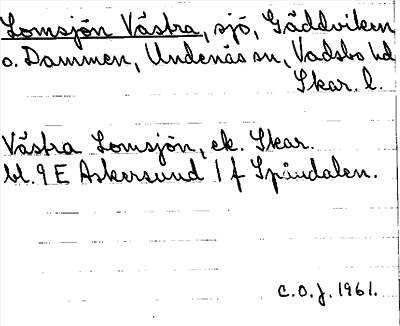 Lomsjön Västra, sjö, Gäddviken
o. Dammen, Undenäs sn, Vadsbo hd
Skar. l.
Västra Lomsjön, ek. Skar.
bl. 9 E Askersund 1 f Spåndalen.
C.O.J. 1961.